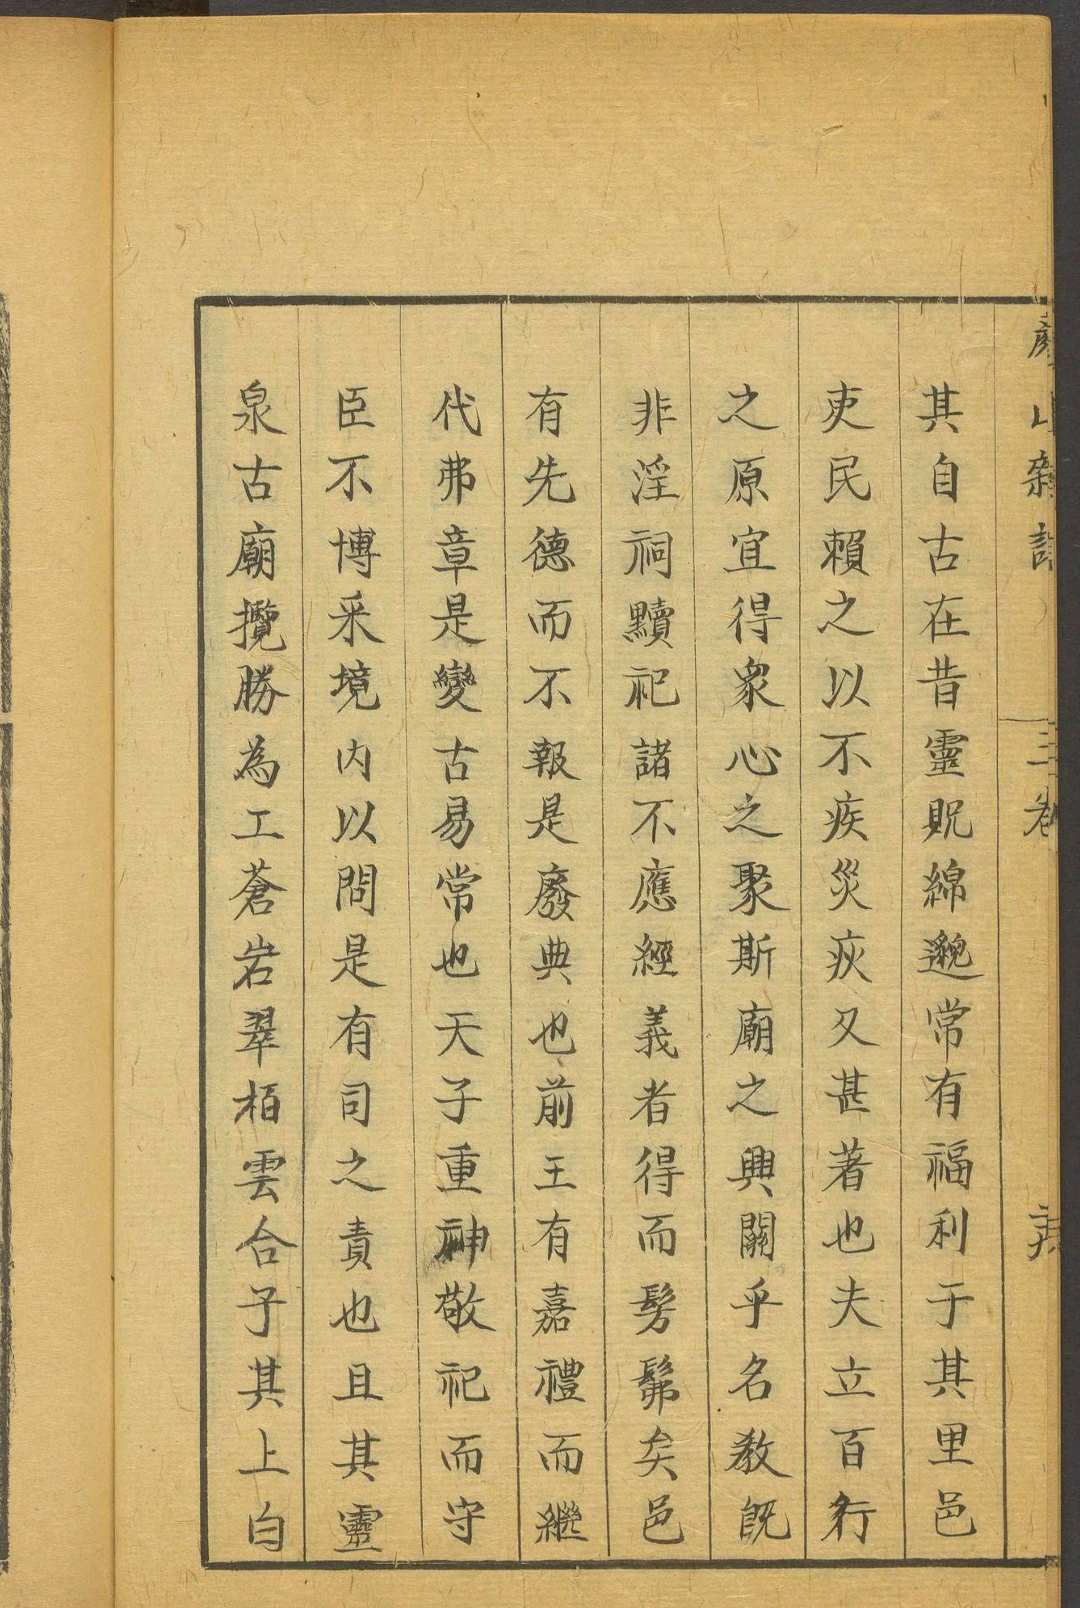 其自古在昔靈貺綿邈常有福利于其里邑
吏民賴之以不疾災疢又甚著也夫立百行
之原宜得衆心之聚斯廟之興關乎名教既
非淫祠黷祀諸不應經義者得而髣髴矣邑
有先德而不報是廢典也前王有嘉禮而繼
代弗章是變古易常也天子重神敬祀而守
臣不博采境内以問是有司之責也且其靈
泉古廟攬勝為工蒼岩翠栢雲合于其上白
山雜
三卷